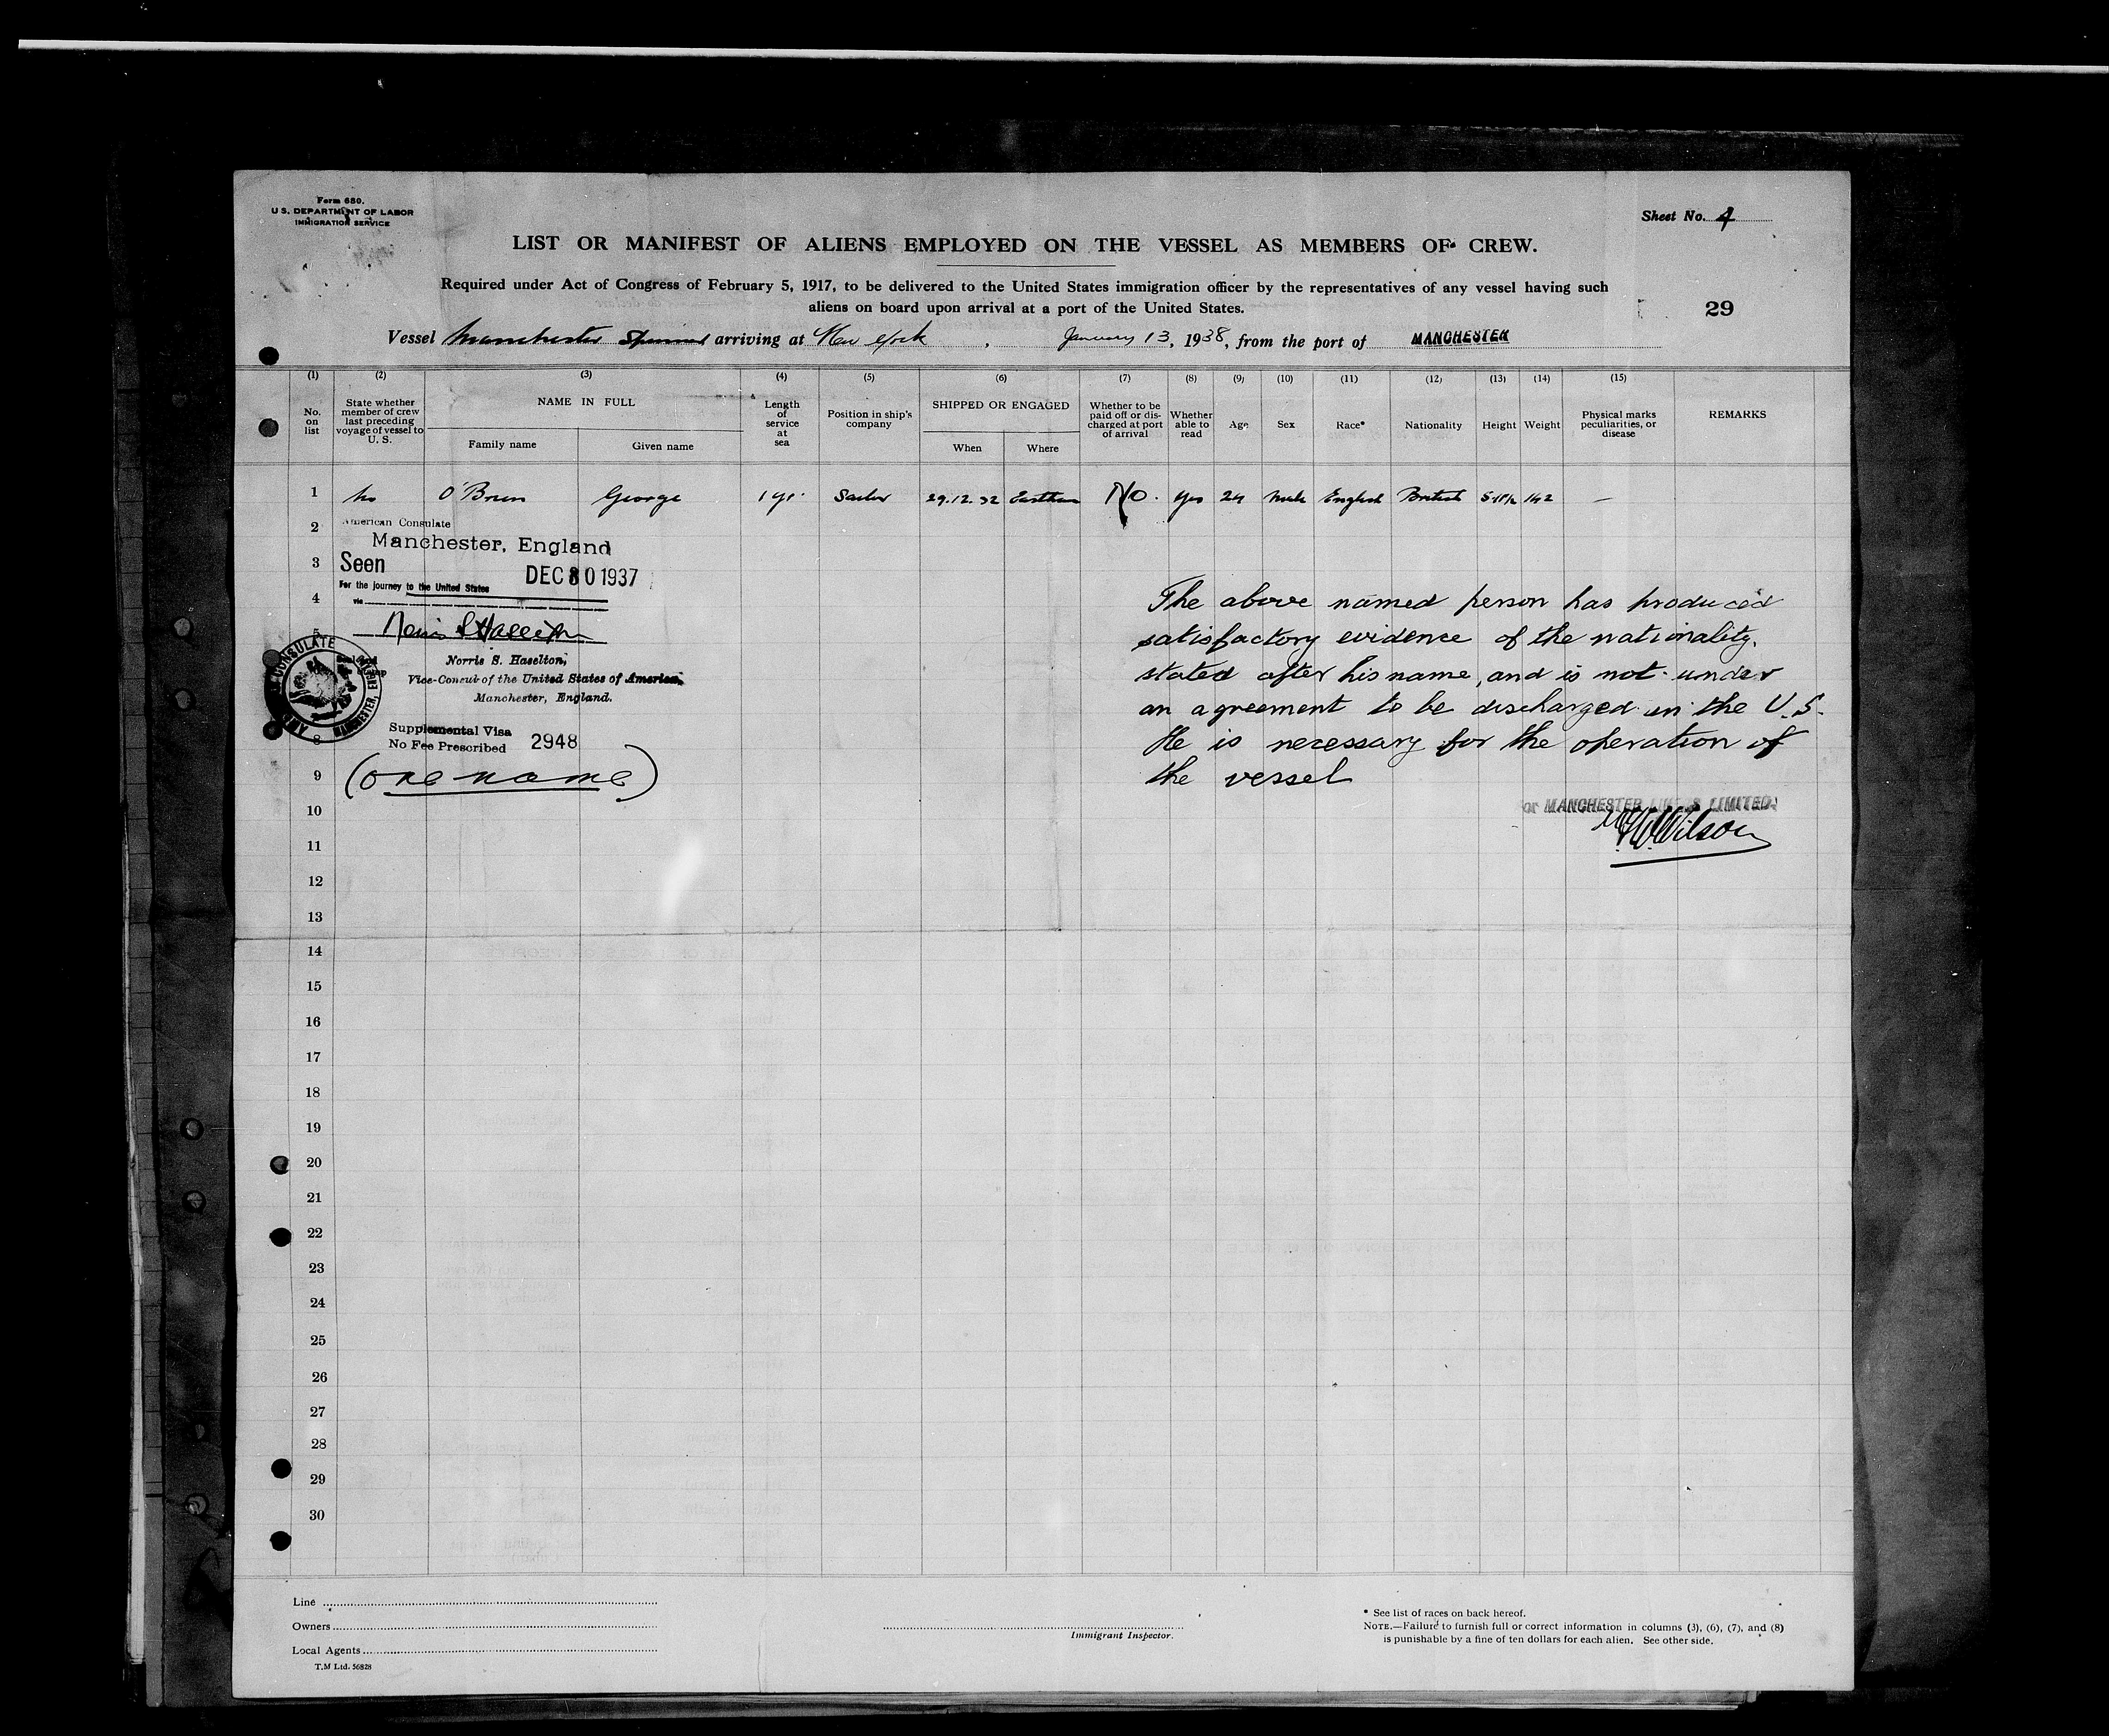 Form 680.
U.S. DEPARTMENT OF LABOR
IMMIGRATION SERVICE
Sheet No. 4
LIST OR MANIFEST OF ALIENS EMPLOYED ON THE VESSEL AS MEMBERS OF CREW.
Required under Act of Congress of February 5, 1917, to be delivered to the United States immigration officer by the representatives of any vessel having such
aliens on board upon arrival at a port of the United States.
29
Vessel Manchester arriving at New York, January 13, 1938, from the port of MANCHESTER
(1) (2) (3) (4) (5) (6) (7) (8) (9) (10) (11) (12) (13) (14) (15)
No. on list
State whether member of crew last preceding voyage of vessel to U. S.
NAME IN FULL
Family name
Given name
Length of service at sea
Position in ship's company
SHIPPED OR ENGAGED
When
Where
Whether to be paid off or discharged at port of arrival
Whether able to read
Age
Sex
Race*
Nationality
Height
Weight
Physical marks peculiarities, or disease
REMARKS
1 No O'Brien George 1 yr. Sailor 29.12.32 Eastham No. Yes 24 Male English British 142 —
2
American Consulate
Manchester, England
3
Seen
DEC 30 1937
For the journey to the United States
4
via
5
Norris S. Haselton
AMERICAN CONSULATE
MANCHESTER, ENGLAND
Norris S. Haselton,
Vice-Consul of the United States of America,
Manchester, England.
8
Supplemental Visa
No Fee Prescribed 2948
9
(one name)
The above named person has produced
satisfactory evidence of the nationality.
stated after his name, and is not under
an agreement to be discharged in the U.S.
He is necessary for the operation of
the vessel
or MANCHESTER LINES LIMITED.
Wilson
10
11
12
13
14
15
16
17
18
19
20
21
22
23
24
25
26
27
28
29
30
Line
Owners
Local Agents
T.M Ltd. 56828
Immigrant Inspector.
* See list of races on back hereof.
NOTE.—Failure to furnish full or correct information in columns (3), (6), (7), and (8)
is punishable by a fine of ten dollars for each alien. See other side.